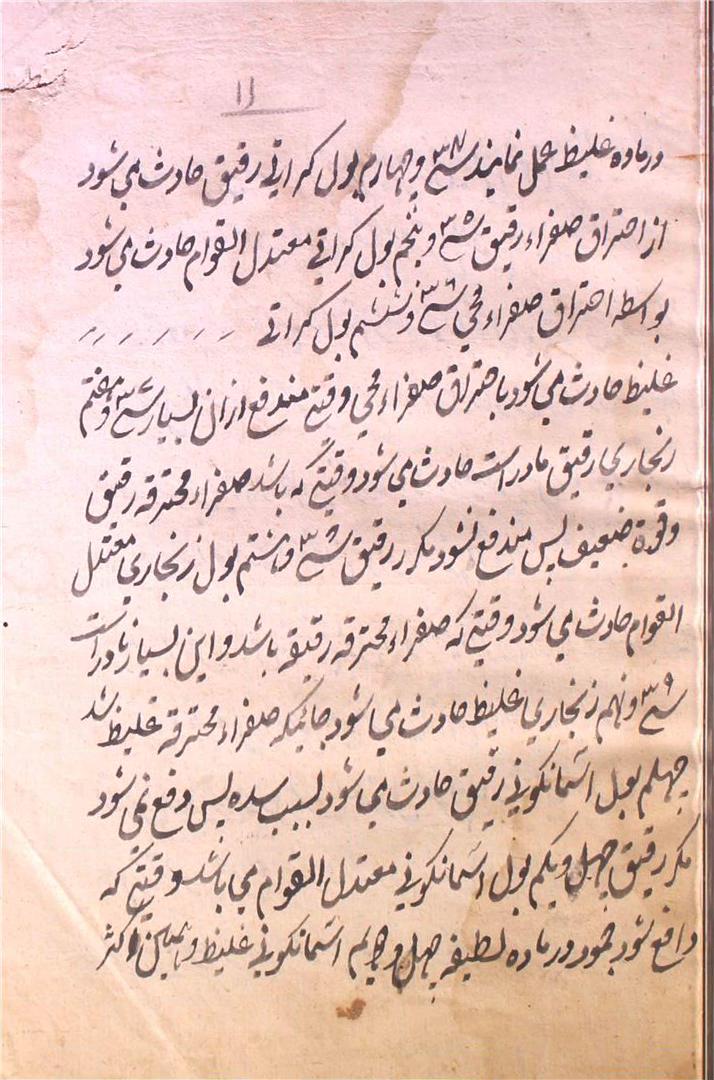 ۱۱
در ماده غلیظ عمل نمایند ش۳۴ وچهارم بول کراثی رقیق حادث می شود
از احتراق صفراء رقیق ش۳۵ وپنجم بول کراثی معتدل القوام حادث می شود
بواسطه احتراق صفراء محی ش۳۶ وششم بول کراثی
غلیظ حادث می شود باحتراق صفراء محی وقتی مندفع ازان بسیار ش۳۷ وهفتم
زنجاری رقیق نادر است حادث می شود وقتی که باشد صفراء محترقه رقیق
وقوة ضعیف پس مندفع نشود مکر رقیق ش۳۸ وهشتم بول زنجاری معتدل
القوام حادث می شود وقتی که صفراء محترقه رقیقه باشد واین بسیار نادر است
ش۳۹ ونهم زنجاری غلیظ حادث می شود جائیکه صفراء محترقه غلیظ شد
چهلم بول آسمانکونی رقیق حادث می شود بسبب سده پس دفع نمی شود
مکر رقیق چهل ویکم بول آسمانکونی معتدل القوام می باشد وقتی که
واقع شود جمود در ماده لطیفه چهل ودویم آسمانکونی غلیظ واین اکثر